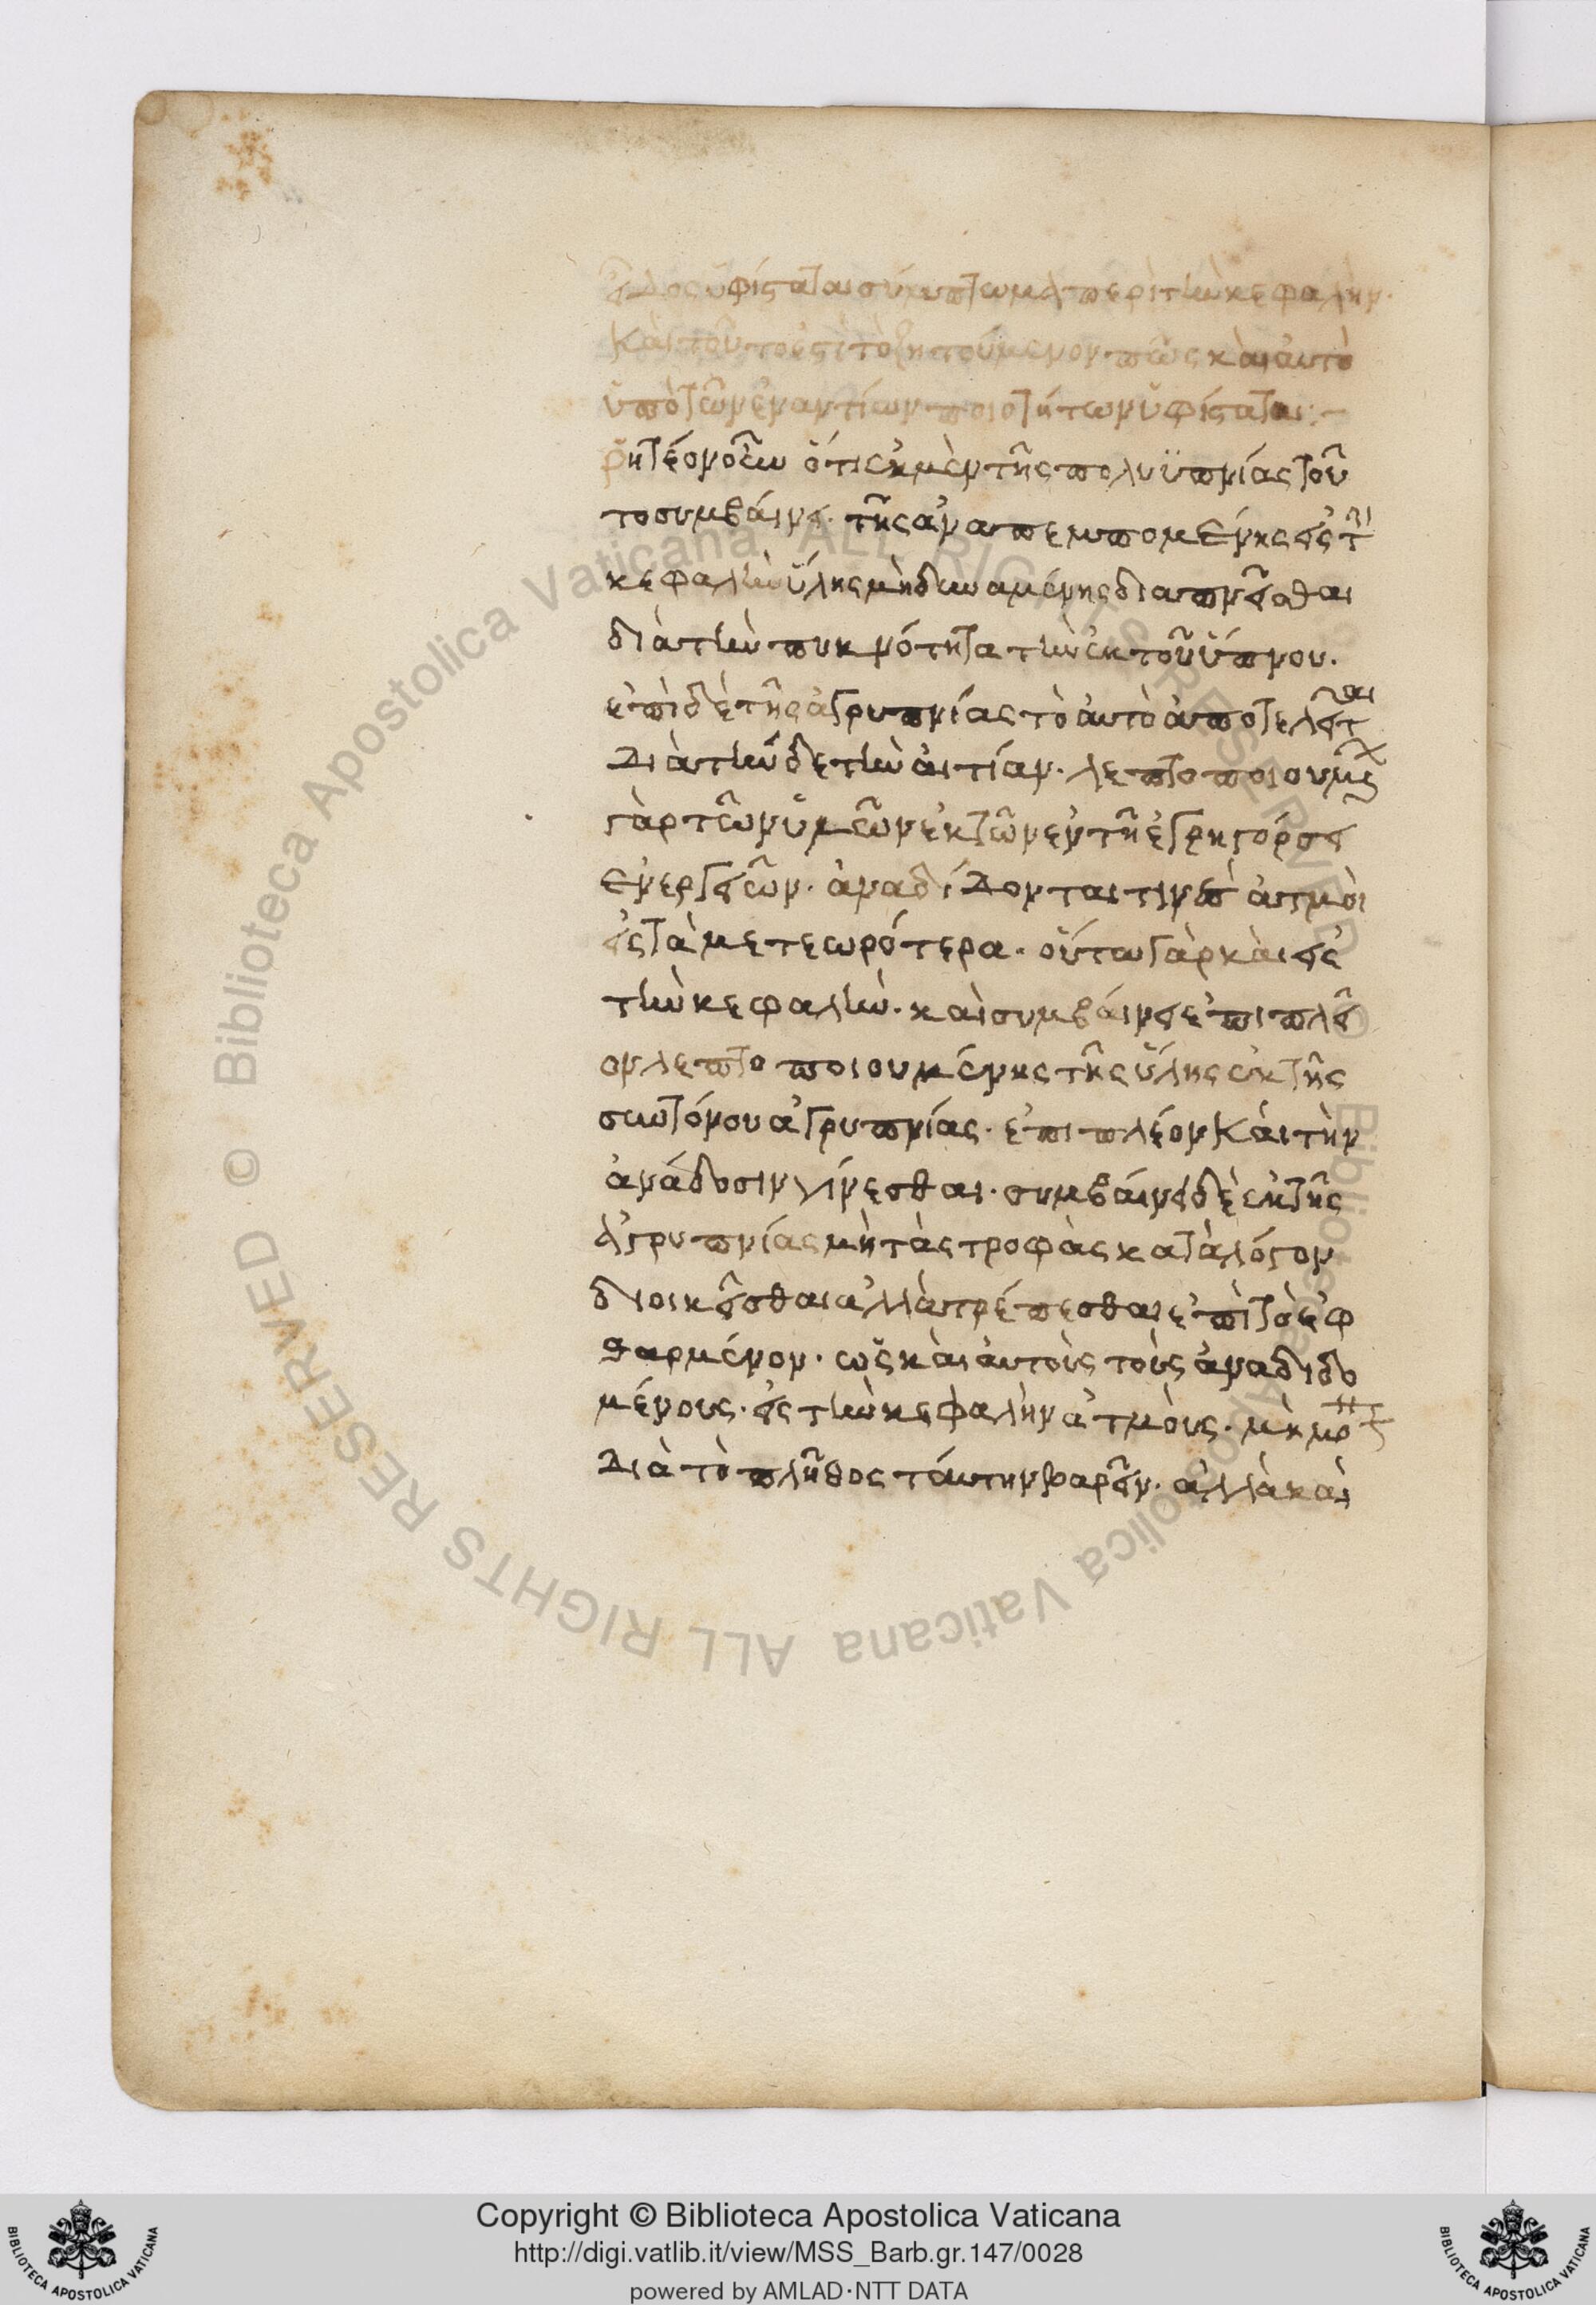 εἶδος ὑφίσταται σύμπτωμα περὶ τὴν κεφαλήν.
Καὶ τοῦτό ἐστι τὸ ζητούμενον πῶς καὶ αὐτὸ
ὑπὸ τῶν ἐναντίων ποιοτήτων ὑφίσταται:~
ῥητέον οὖν ὅτι ἐκ μὲν τῆς πολυϋπνίας τοῦ
το συμβαίνει. τῆς ἀναπεμπομένης εἰς τὴν
κεφαλὴν ὕλης μὴ δυναμένης διαπνεῖσθαι
διὰ τὴν πυκνότητα τὴν ἐκ τοῦ ὕπνου.
ἐπὶ δὲ τῆς ἀγρυπνίας τὸ αὐτὸ ἀποτελεῖται
Διὰ τήνδε τὴν αἰτίαν. λεπτοποιουμένων
γὰρ τῶν ὑμῶν ἐκ τῶν ἐν τῇ ἐγρηγόρσει
ἐνεργειῶν. ἀναδίδονται τινὲς ἀτμοὶ
εἰς τὰ μετεωρότερα. οὕτω γὰρ καὶ εἰς
τὴν κεφαλὴν. καὶ συμβαίνει ἐπὶ πλεῖ
ον λεπτοποιουμένης τῆς ὕλης ἐκ τῆς
συντόνου ἀγρυπνίας. ἐπὶ πλέον Καὶ τὴν
ἀνάδοσιν γίνεσθαι. συμβαίνει δὲ ἐκ τῆς
ἀγρυπνίας μὴ τὰς τροφὰς κατὰ λόγον
διοικεῖσθαι ἀλλὰ τρέπεσθαι ἐπὶ τὸ ἐφ
θαρμένον. ὡς καὶ αὐτοὺς τοὺς ἀναδιδο
μένους. εἰς τὴν κεφαλὴν ἀτμοὺς. μὴ μόνον
Διὰ τὸ πλῆθος ταύτην βαρεῖν. ἀλλὰ καὶ
Copyright © Biblioteca Apostolica Vaticana
http://digi.vatlib.it/view/MSS_Barb.gr.147/0028
powered by AMLAD·NTT DATA
BIBLIOTECA APOSTOLICA VATICANA
BIBLIOTECA APOSTOLICA VATICANA
© Biblioteca Apostolica Vaticana ALL RIGHTS RESERVED
© Biblioteca Apostolica Vaticana ALL RIGHTS RESERVED